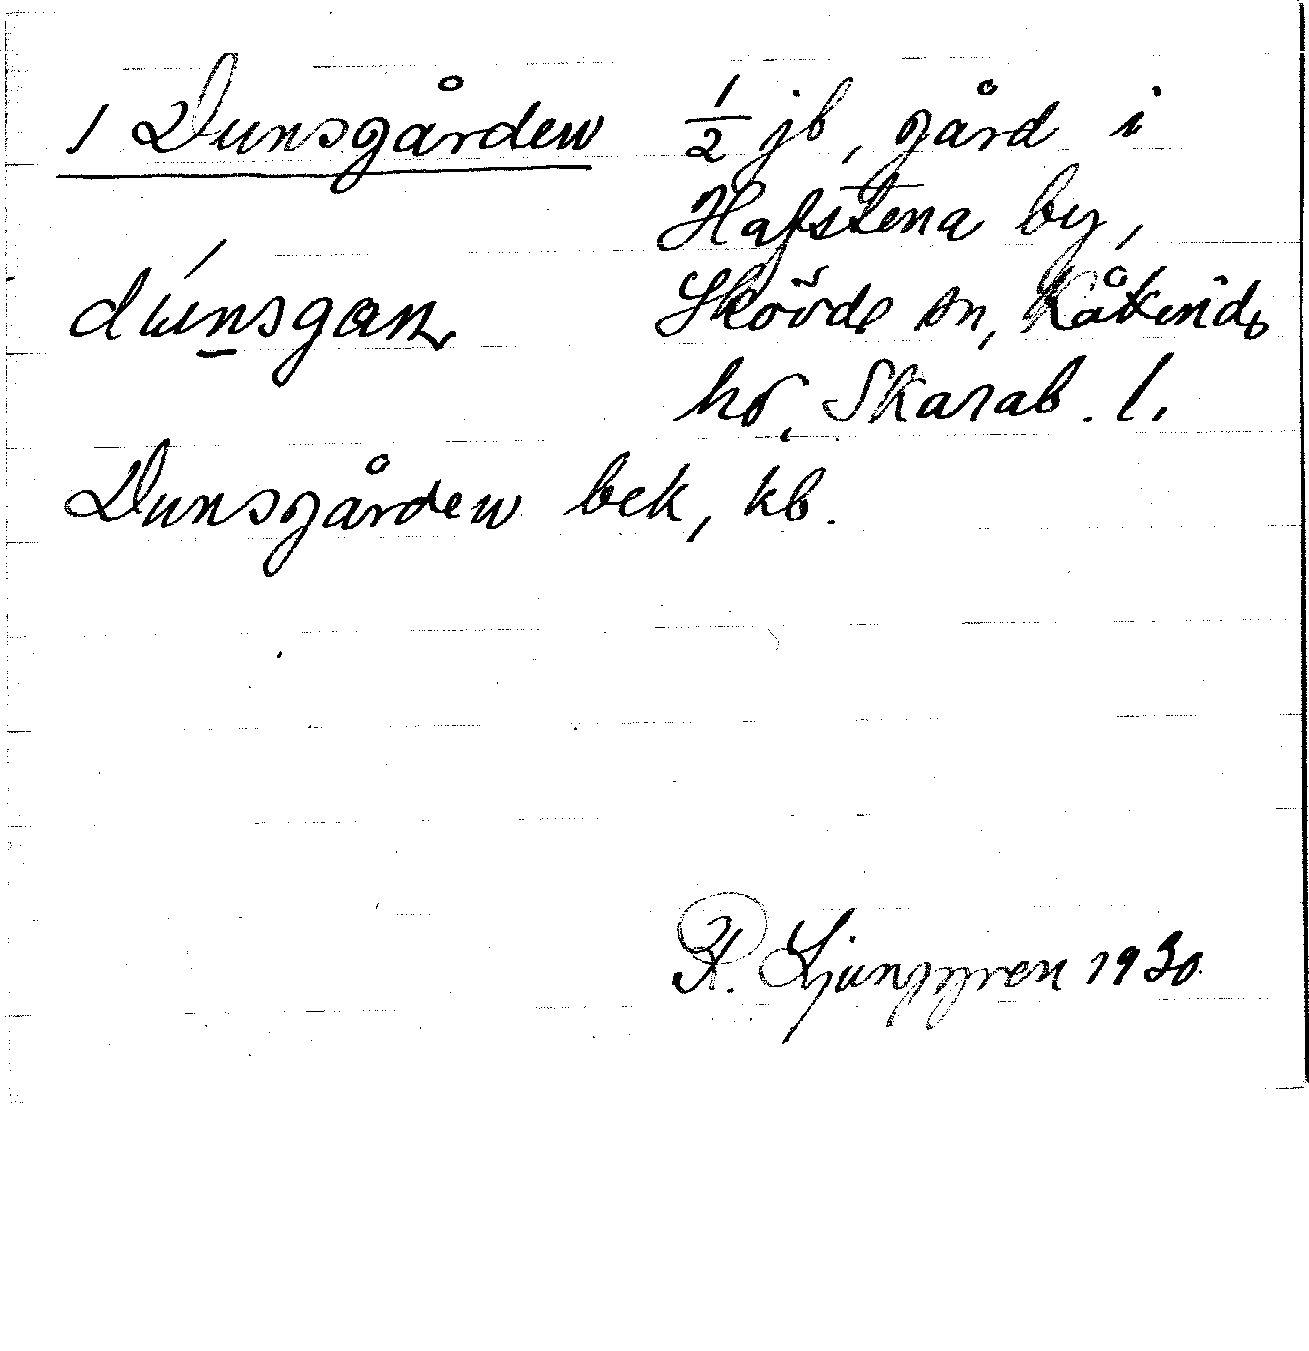 1 Dunsgården
1/2 jb, gård i
Hafstena by,
Skövde sn, Kåkinds
hd, Skarab. l.
Dunsgården bek, kb.
R. Ljunggren 1930